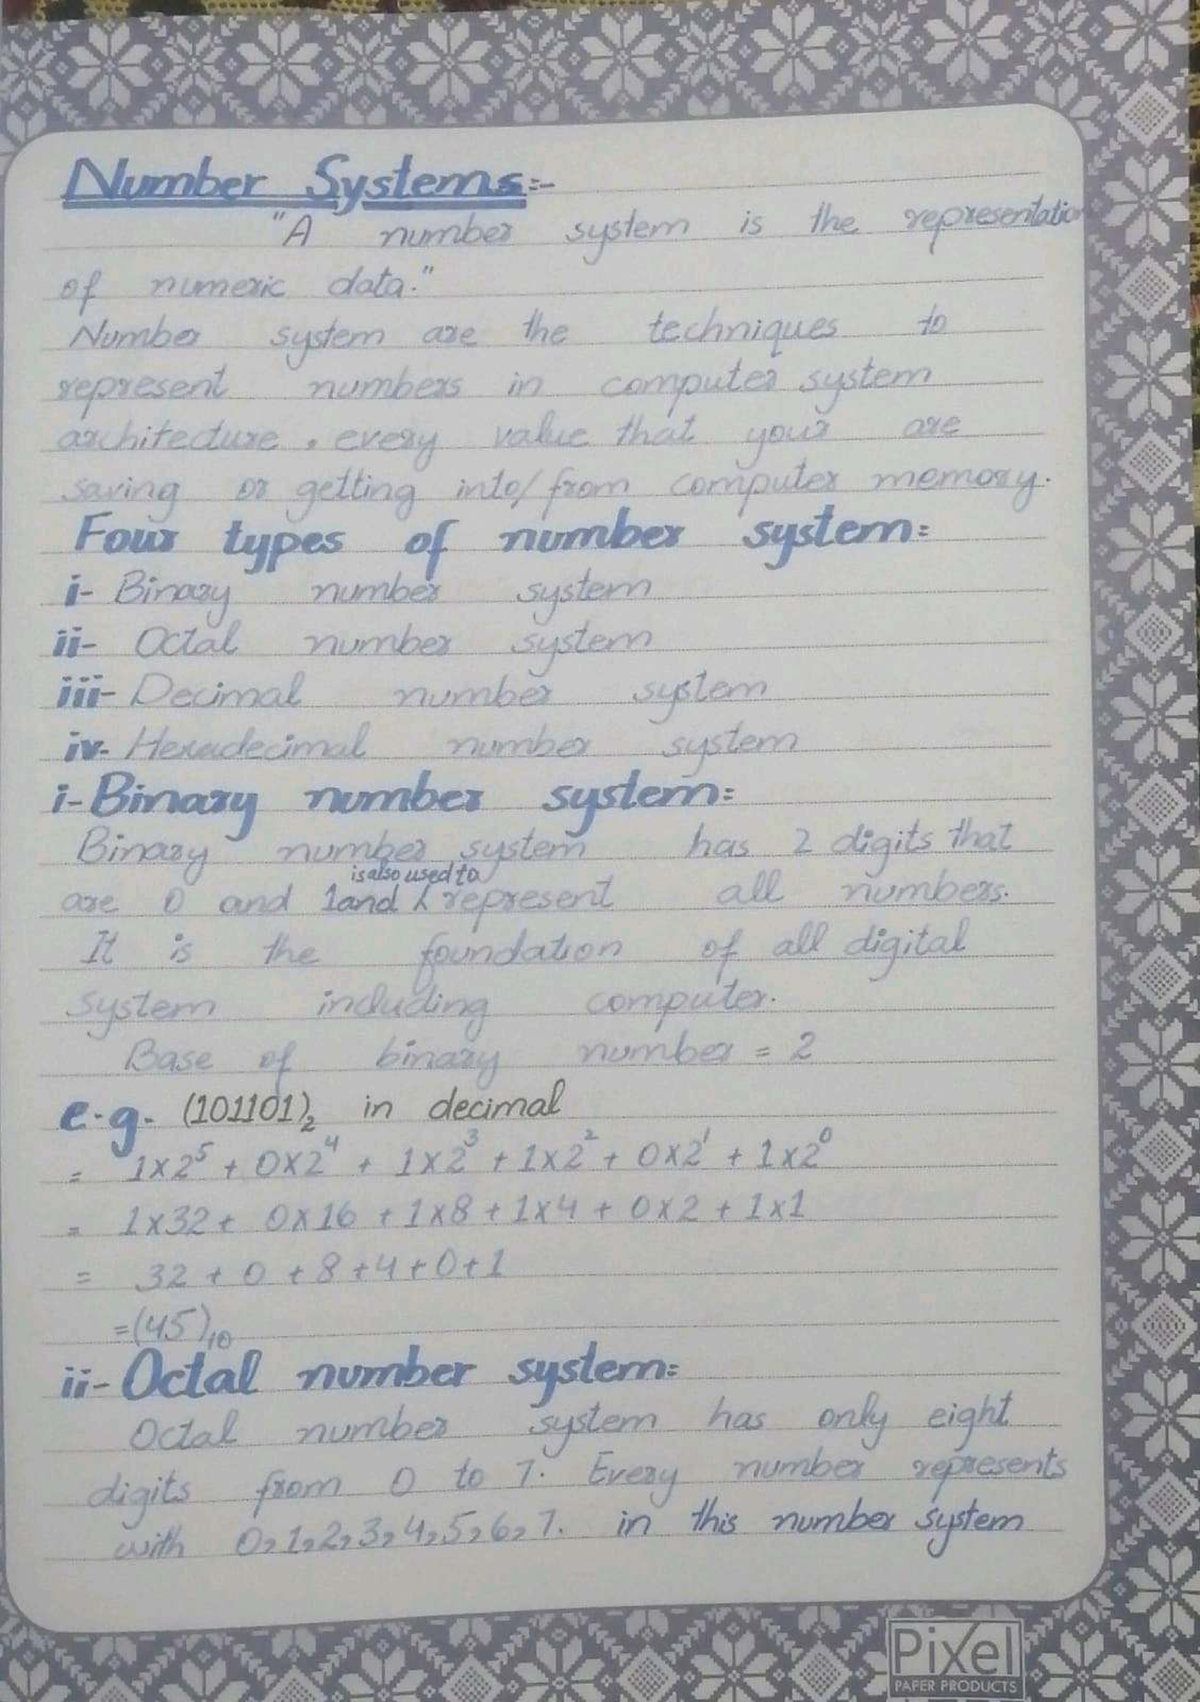 Number Systems:-
"A number system is the representation
of numeric data."
Number system are the techniques to
represent numbers in computer system
architecture, every value that your are
saving or getting into/from computer memory.
Four types of number system:
i- Binary number system
ii- Octal number system
iii- Decimal number system
iv- Hexadecimal number system
i- Binary number system:
Binary number system has 2 digits that
is also used to
are 0 and 1 and ʎ represent all numbers.
It is the foundation of all digital
system including computer.
Base of binary number = 2
e.g. (101101)₂ in decimal
= 1x2⁵ + 0x2⁴ + 1x2³ + 1x2² + 0x2¹ + 1x2⁰
= 1x32 + 0x16 + 1x8 + 1x4 + 0x2 + 1x1
= 32 + 0 + 8 + 4 + 0 + 1
=(45)₁₀
ii- Octal number system:
Octal number system has only eight
digits from 0 to 7. Every number represents
with 0,1,2,3,4,5,6,7. in this number system
Pixel
PAPER PRODUCTS